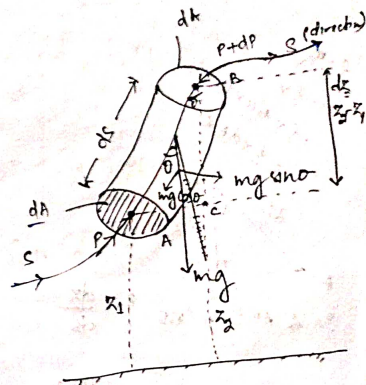 dA
P+dP
S
(direction)
B
P
dS
dz
z₂-z₁
θ
mg sinθ
mg cosθ
C
dA
P
A
S
mg
z₁
z₂